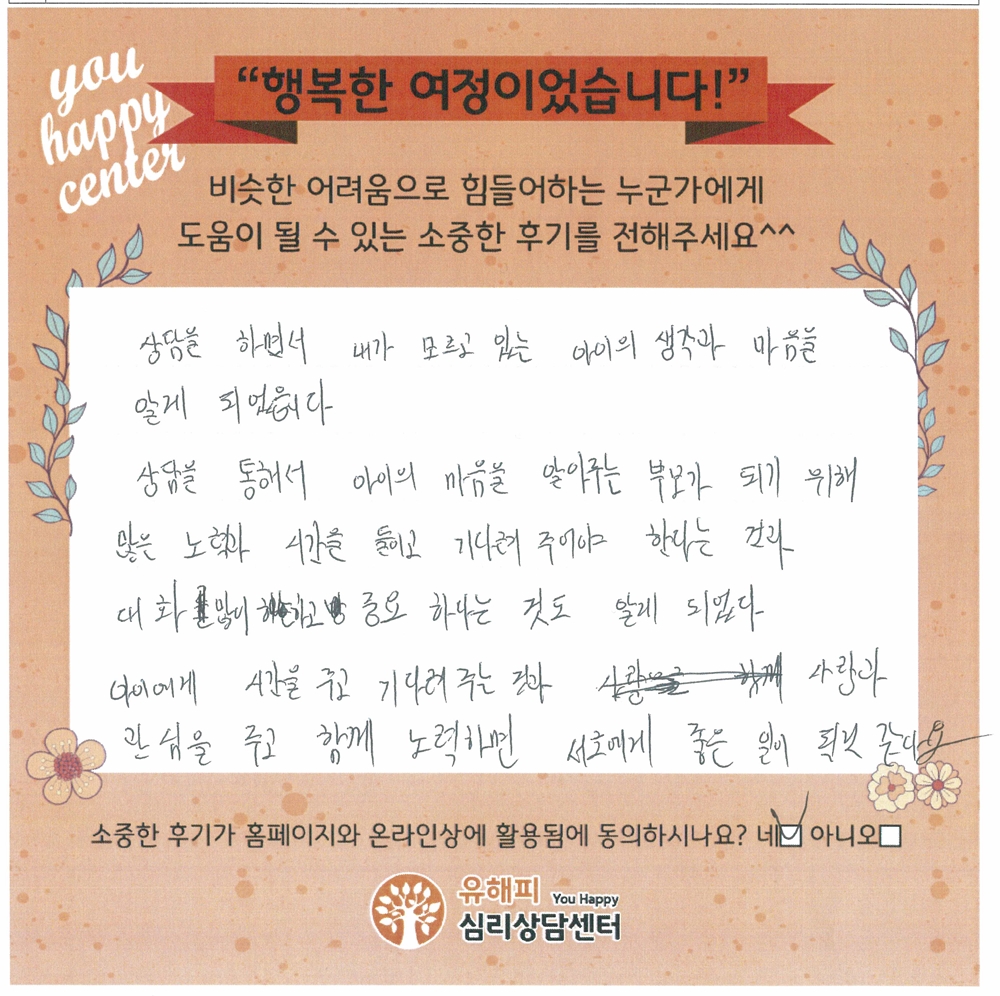 you
happy
center
“행복한 여정이었습니다!”
비슷한 어려움으로 힘들어하는 누군가에게
도움이 될 수 있는 소중한 후기를 전해주세요^^
상담을 하면서 내가 모르고 있는 아이의 생각과 마음을
알게 되었습니다
상담을 통해서 아이의 마음을 알아주는 부모가 되기 위해
많은 노력과 시간을 들이고 기다려 주어야 한다는 것과
대화 많이 중요 하다는 것도 알게 되었다
아이에게 시간을 주고 기다려 주는 것과 사랑과
관심을 주고 함께 노력하면 서로에게 좋은 일이 될것 같다
소중한 후기가 홈페이지와 온라인상에 활용됨에 동의하시나요? 네 아니오
유해피 You Happy
심리상담센터